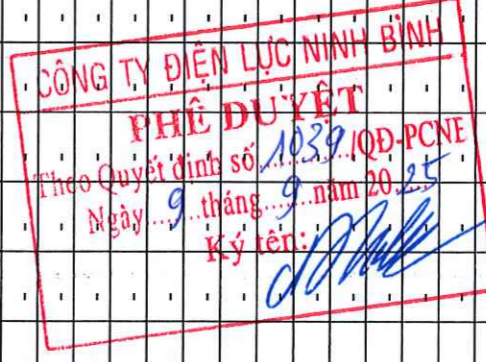 CÔNG TY ĐIỆN LỰC NINH BÌNH
PHÊ DUYỆT
Theo Quyết định số 1039 /QĐ-PCNB
Ngày 9 tháng 9 năm 20 25
Ký tên: